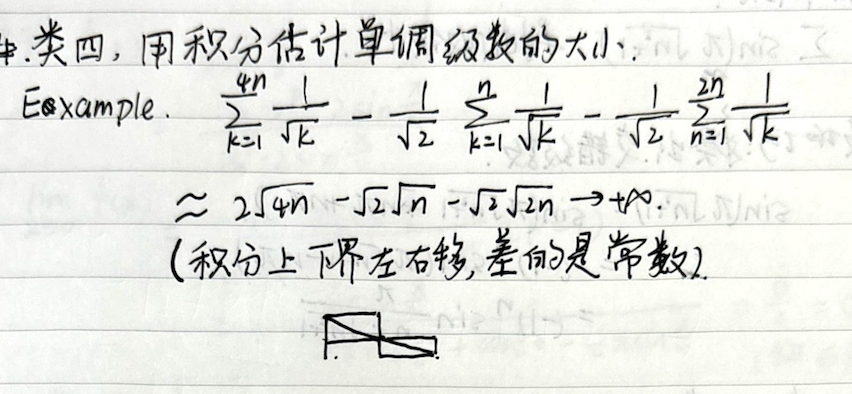 类四，用积分估计单调级数的大小：
Example. \sum_{k=1}^{4n} \frac{1}{\sqrt{k}} - \frac{1}{\sqrt{2}} \sum_{k=1}^{n} \frac{1}{\sqrt{k}} - \frac{1}{\sqrt{2}} \sum_{n=1}^{2n} \frac{1}{\sqrt{k}}
≈ 2\sqrt{4n} - \sqrt{2}\sqrt{n} - \sqrt{2}\sqrt{2n} → +∞.
(积分上下界左右移，差的是常数).